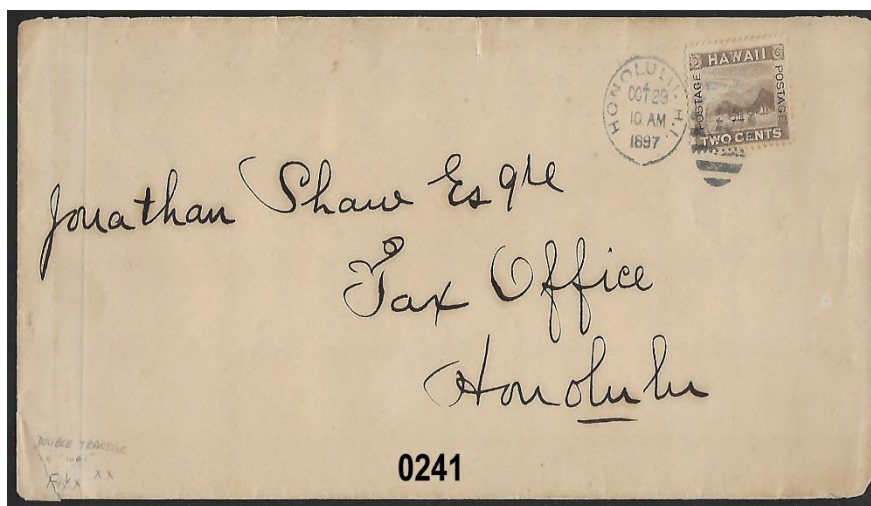 HONOLULU. H.I.
OCT 29
10 AM
1897
HAWAII
POSTAGE
POSTAGE
TWO CENTS
Jonathan Shaw Esqre
Tax Office
Honolulu
DOUBLE TRANSFER
0241